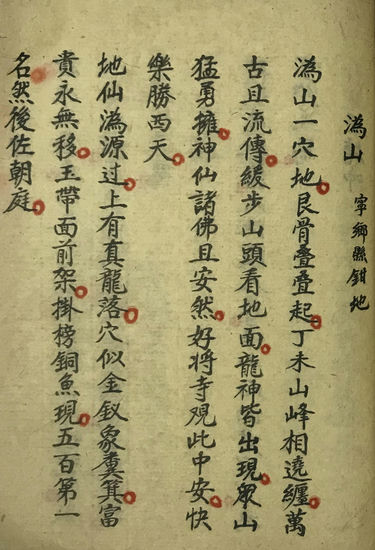 溈山 寧鄉縣鉗地
溈山一穴地艮骨叠叠起丁未山峰相遶纏萬
古且流傳緩步山頭看地面龍神皆出現眾山
猛勇擁神仙諸佛且安然好將寺观此中安快
樂勝西天
地仙溈源过上有真龍落穴似金釵象糞箕富
貴永無移玉帶面前架掛榜銅魚現五百第一
名然後佐朝庭